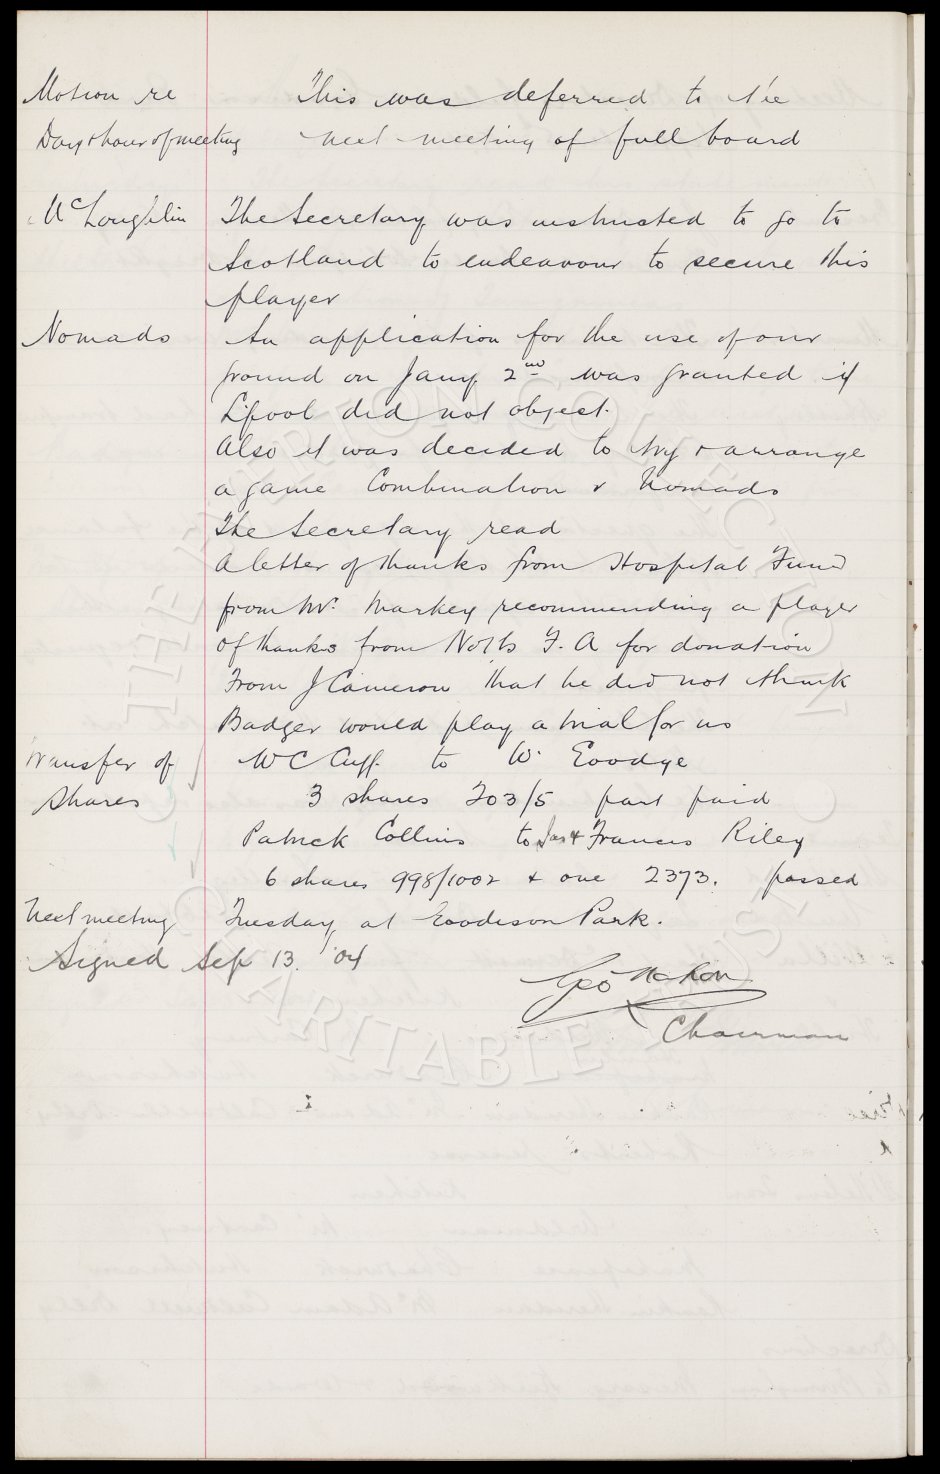 Motion re This was deferred to the
Day & hour of meeting next meeting of full board
McLoughlin The Secretary was instructed to go to
Scotland to endeavour to secure this
player
Nomads An application for the use of our
ground on Jany 2nd was granted if
L'pool did not object.
Also it was decided to try & arrange
a game Combination v Nomads
The Secretary read
A letter of thanks from Hospital Fund
from Mr. Markey recommending a player
of thanks from Notts F. A for donation
From J Cameron that he did not think
Badger would play a trial for us
Transfer of W C Cuff to W. Goodye
Shares 3 shares 703/5 part paid
Patrick Collins to Jas & Francis Riley
6 shares 998/1002 & one 2373. passed
Next meeting Tuesday at Goodison Park.
Signed Sep 13. '04
Geo Mahon
Chairman
THE EVERTON COLLECTION CHARITABLE TRUST